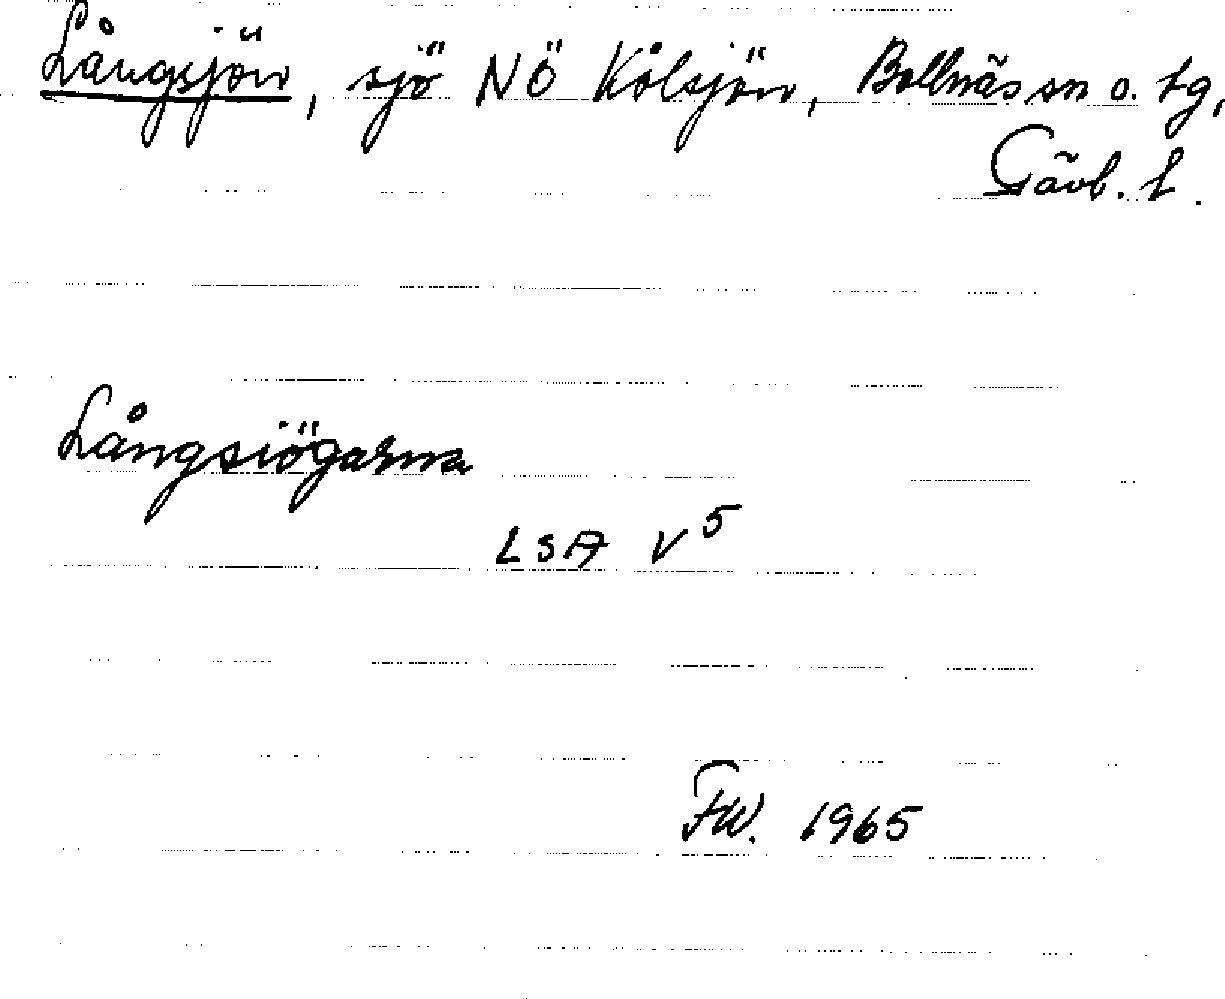 Långsjön, sjö NÖ Kölsjön, Bollnäs sn o. tg,
Gävl. l.
Långsiögarna
LSA V5
FW. 1965